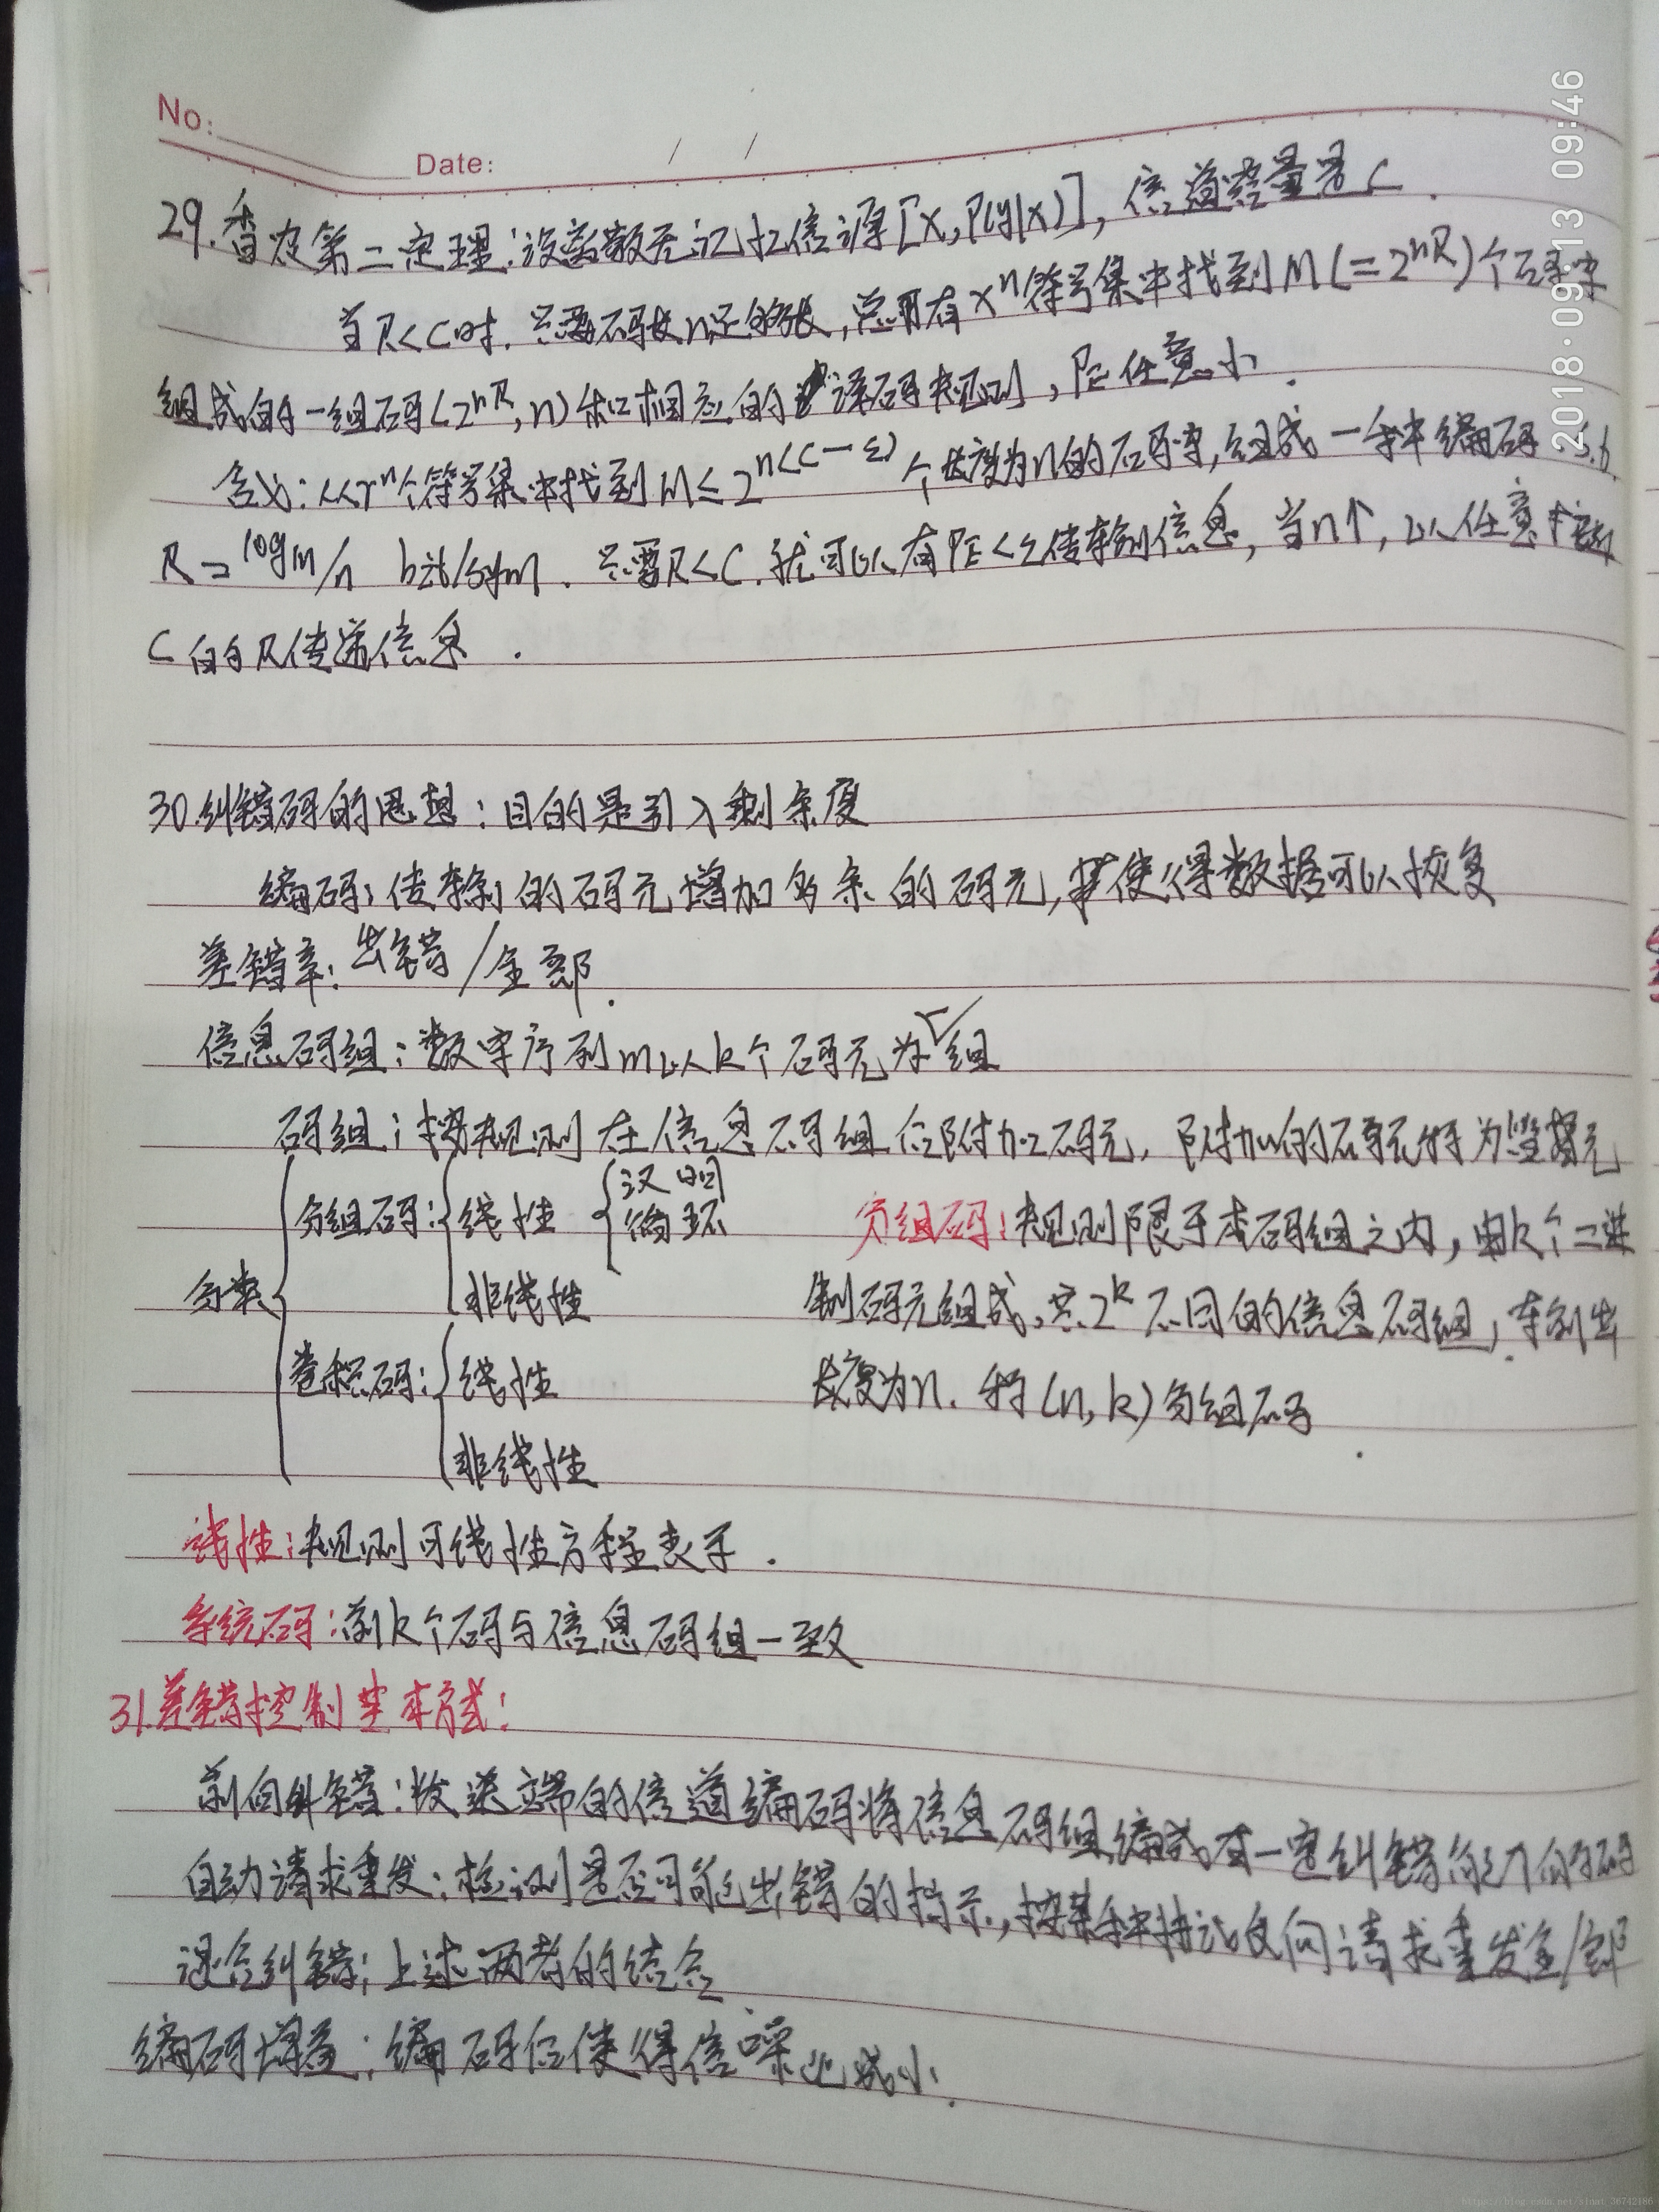 No:
Date: / /
2018·09·13 09:46
29.香农第二定理:设离散无记忆信源[X,P(y|x)],信道容量是C.
当R<C时.只要码长n足够长,总可有Xⁿ符号集中找到M(=2^{nR})个码字
组成的一组码(2^{nR},n)和相应的译码规则,P_E任意小.
含义:从rⁿ个符号集中找到M≤2^{n(C-ε)}个长度为n的码字,组成一种编码
R=logM/n bit/sym.只要R<C.就可以有P_E<ε传输信息,当n↑,以任意
C的R传递信息.
30.纠错码的思想:目的是引入剩余度
编码:传输的码元增加多余的码元,使得数据可以恢复
差错率:出错/全部.
信息码组:数字序列m以k个码元为一组
码组:按规则在信息码组后附加码元,附加的码元称为监督元
分类
分组码:线性 汉明
循环
非线性
卷积码:线性
非线性
分组码:规则限于本码组之内,由k个二进
制码元组成,共2^k不同的信息码组,车输出
长度为n.称(n,k)分组码.
线性:规则可线性方程表示.
系统码:前k个码与信息码组一致
31.差错控制基本方式:
前向纠错:发送端的信道编码将信息码组编成有一定纠错能力的码
自动请求重发:检测是否可能出错的指示,按某种协议反向请求重发全/部
混合纠错:上述两者的结合.
编码增益:编码后使得信噪比减小.